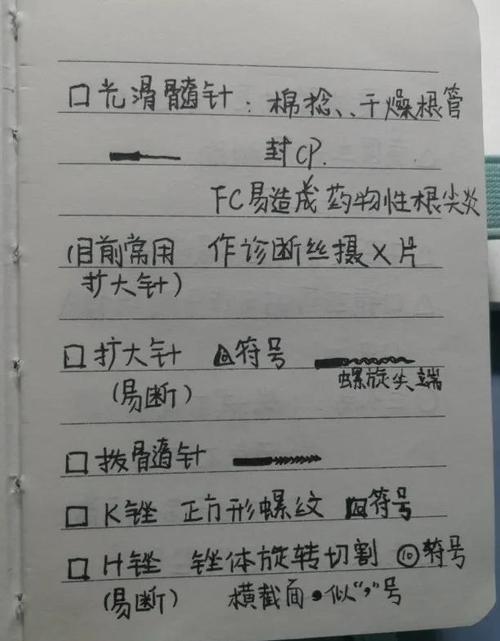 □光滑髓针:棉捻、、干燥根管
封CP.
FC易造成药物性根尖炎
(目前常用 作诊断丝摄X片
扩大针)
□扩大针 △符号
螺旋尖端
(易断)
□拨髓针
□K锉 正方形螺纹 □符号
□H锉 锉体旋转切割 ⑩符号
(易断) 横截面,似“,”号